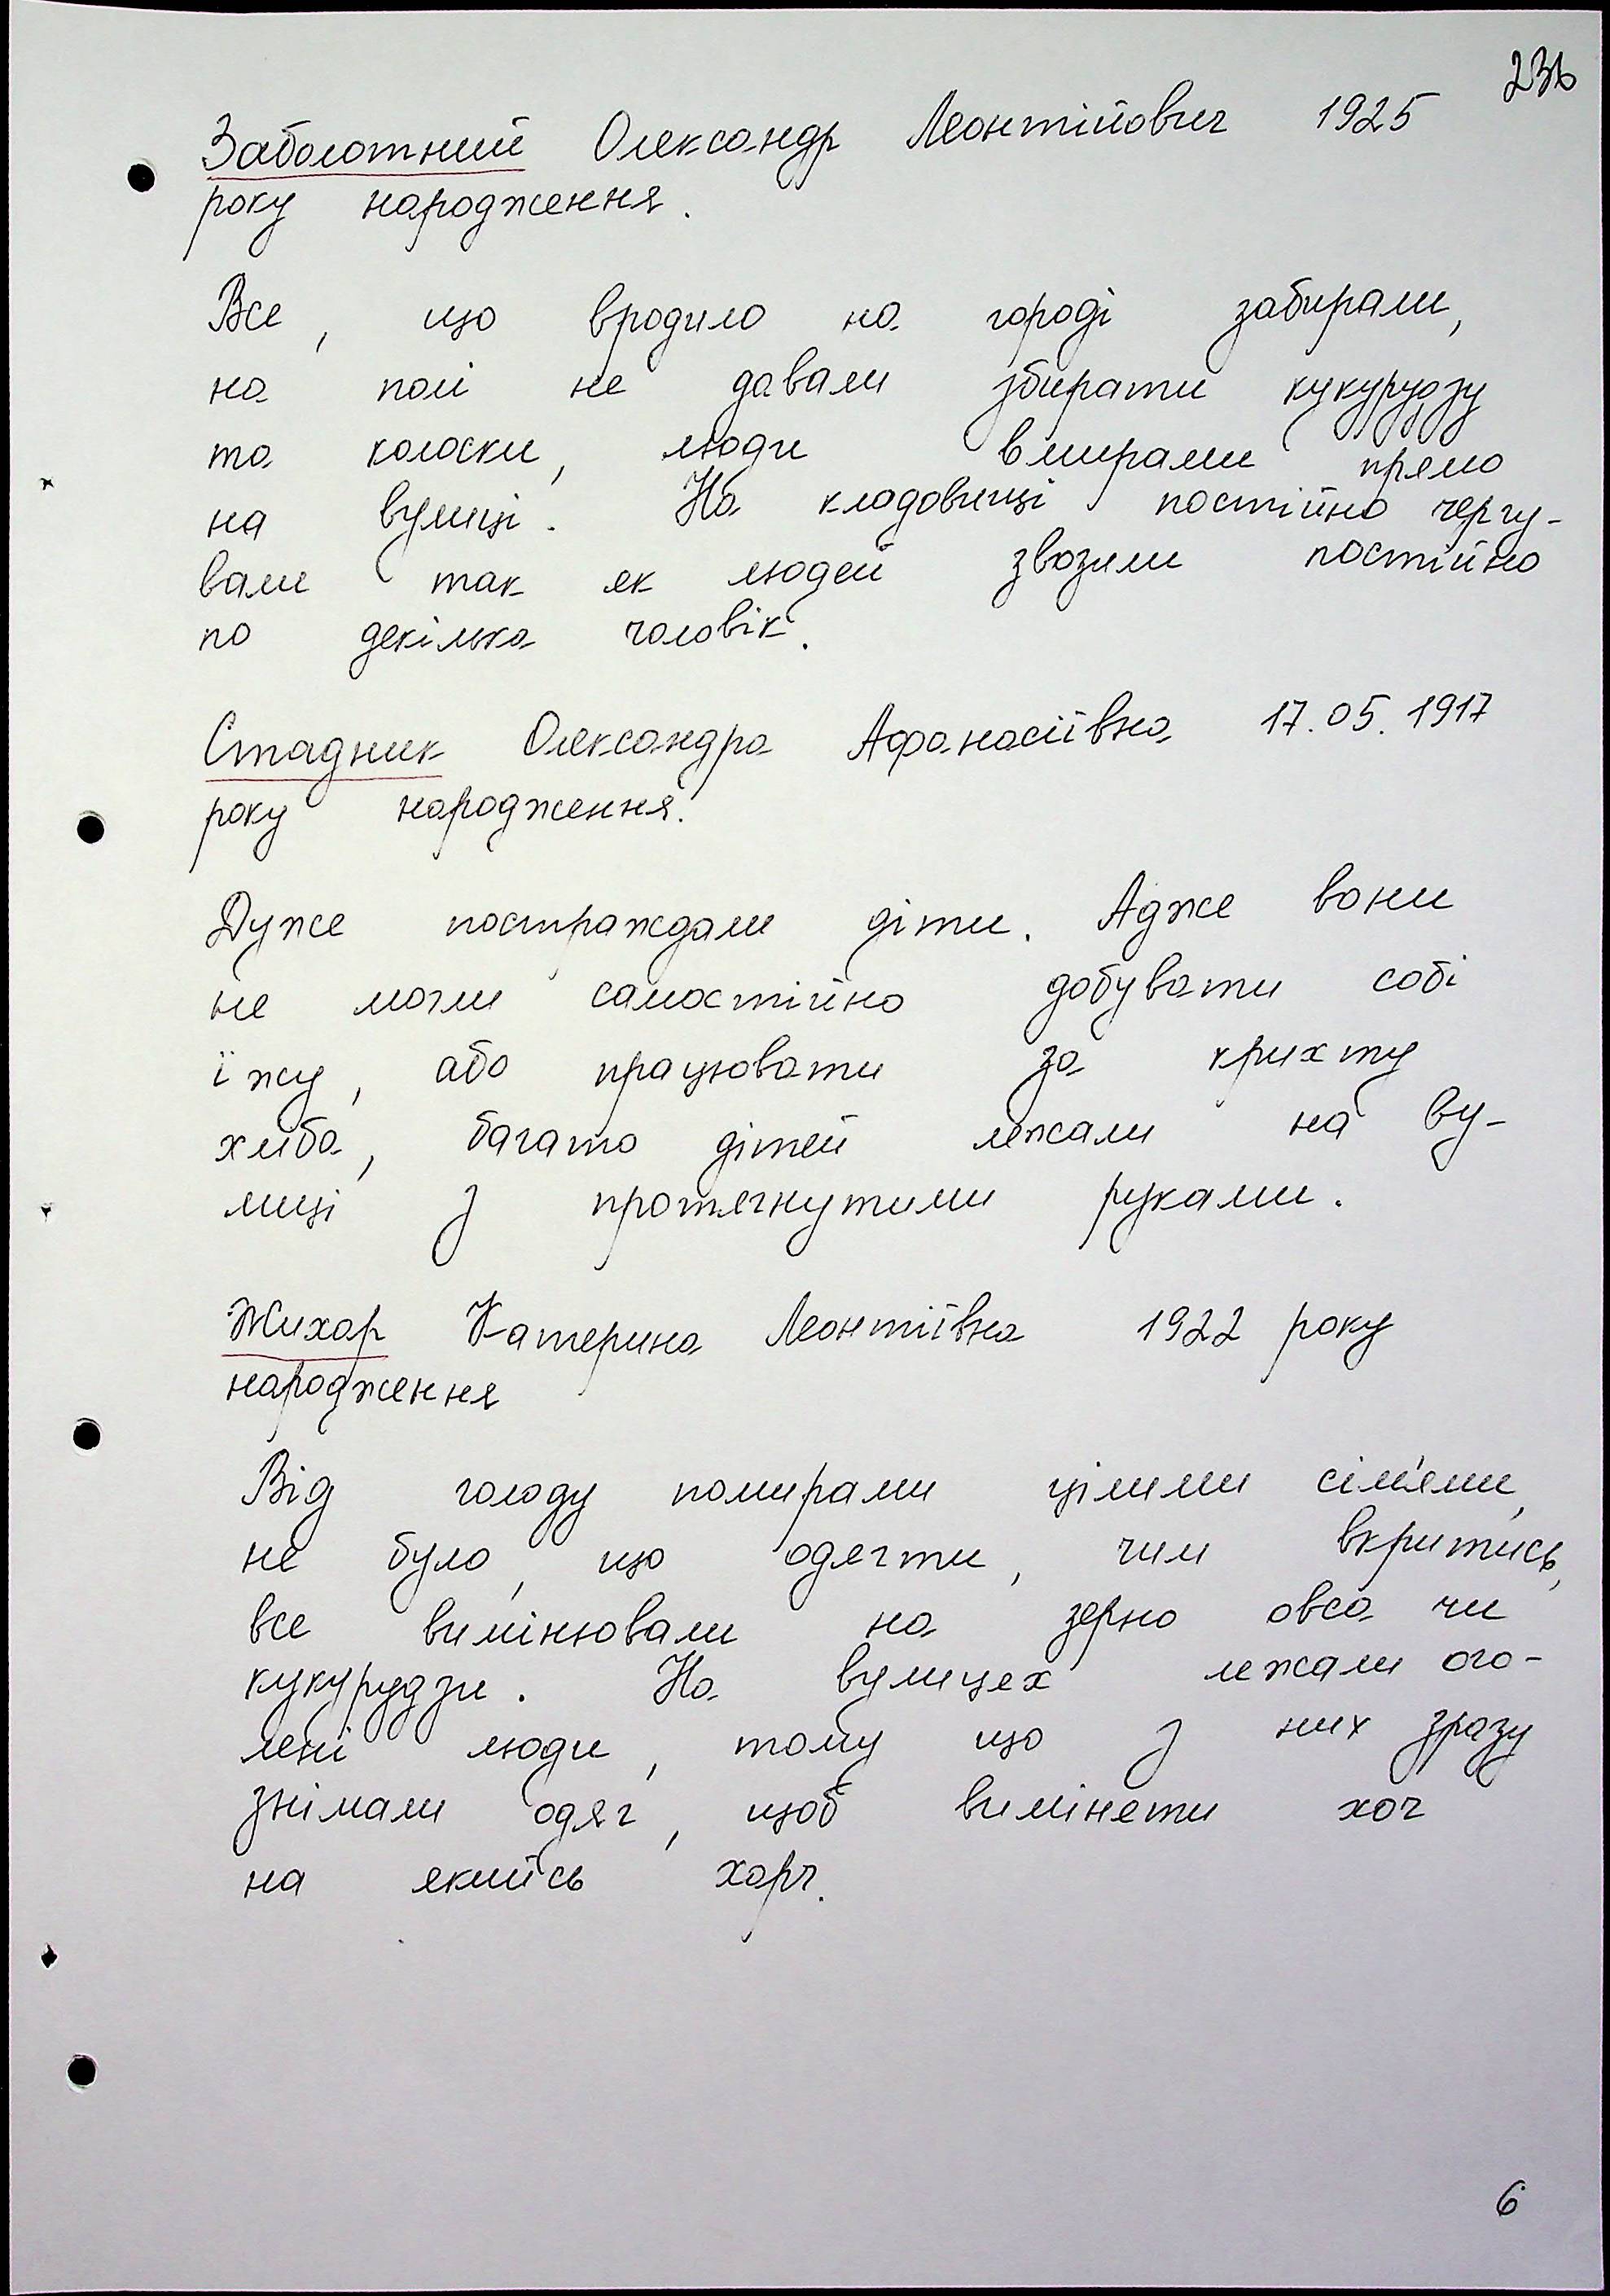 236
Заболотний Олександр Леонтійович 1925
року народження.
Все, що вродило на городі забирали,
на полі не давали збирати кукурудзу
та колоски, люди вмирали прямо
на вулиці. На кладовищі постійно чергу-
вали так як людей звозили постійно
по декілька чоловік.
Стадник Олександра Афанасіївна 17.05.1917
року народження.
Дуже постраждали діти. Адже вони
не могли самостійно добувати собі
їжу, або працювати за крихту
хліба, багато дітей лежали на ву-
лиці з протягнутими руками.
Жихар Катерина Леонтіївна 1922 року
народження
Від голоду помирали цілими сім'ями,
не було, що одягти, чим вкритись,
все вимінювали на зерно овса чи
кукурудзи. На вулицях лежали ого-
лені люди, тому що з них зразу
знімали одяг, щоб виміняти хоч
на якийсь харч.
6